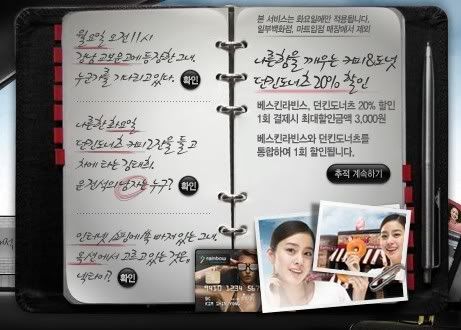 월요일 오전 11시
강남 교보문고에 등장한 그녀.
누군가를 기다리고 있다.
확인
나른한 화요일
던킨도너츠 커피 2잔을 들고
차에 타는 김태희.
운전석의 남자는 누구?
확인
인터넷 쇼핑에 푹 빠져 있는 그녀.
옥션에서 고르고 있는 것은,
넥타이?
확인
본 서비스는 화요일에만 적용됩니다.
일부백화점, 마트입점 매장에서 제외
나른함을 깨우는 커피&도넛
던킨도너츠 20% 할인
베스킨라빈스, 던킨도너츠 20% 할인
1회 결제시 최대할인금액 3,000원
베스킨라빈스와 던킨도너츠를
통합하여 1회 할인됩니다.
추적 계속하기
rainbow